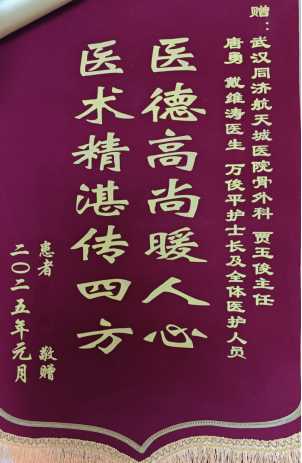 赠：武汉同济航天城医院骨外科 贾玉俊主任
唐勇 戴维涛医生 万俊平护士长及全体医护人员
医德高尚暖人心
医术精湛传四方
患者 敬赠
二〇二五年元月